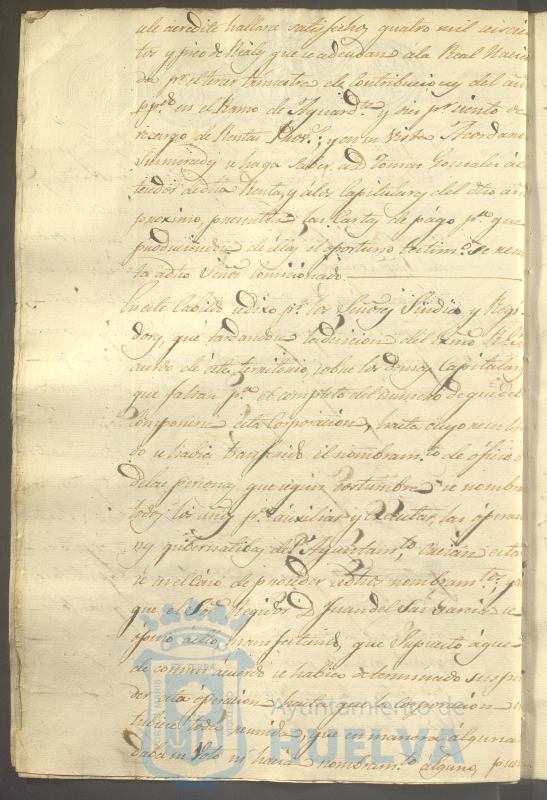 ule acredite hallarse satisfechos quatro mil
tos y pico de Reales que se adeudan ala Real Hacien
da pr. el tercer trimestre de Contribuciones del año
ppdo. en el Ramo de Aguardte. y diez pr. ciento de
recargo de Rentas; y en su Vista Acordaron
se haga saver a D Tomas Gonzalez
de dha Renta, y alos Capitulares del dho año
proximo, presenten las Cartas de págo pa. que
produciendose de ellas el oportuno testimo. se remi
ta adho Señor Comicionado.
En este Cabildo se dixo pr. los Señores Sindico y Regi
dores, que tardandose la decicion del Rl.
acuerdo de este territorio, sobre los demas Capitulares
que faltan pa. el completo del numero de que deve
componerse esta Corporacion, hasta cuyo
do se habia tranferido el nombramto. de oficios
delas personas, que segun costumbre se nombran
todos los años pa. auxiliar y executar las operacio
nes gubernatibas del Ayuntamto., hacian esta
se en el caso de proceder adhos nombramtos.; y
que el Sor. Regidor D. Juan del Saz Garcia se
opuso a ello, manifestando, que Supuesto á que
de comun acuerdo se habia determinado suspen
der esta operacion hasta que la Corporacion es
tubiese toda reunida, y que en manera alguna
daba su Voto ni hacia nombramto. alguno, pues
Ayuntamiento de
HUELVA